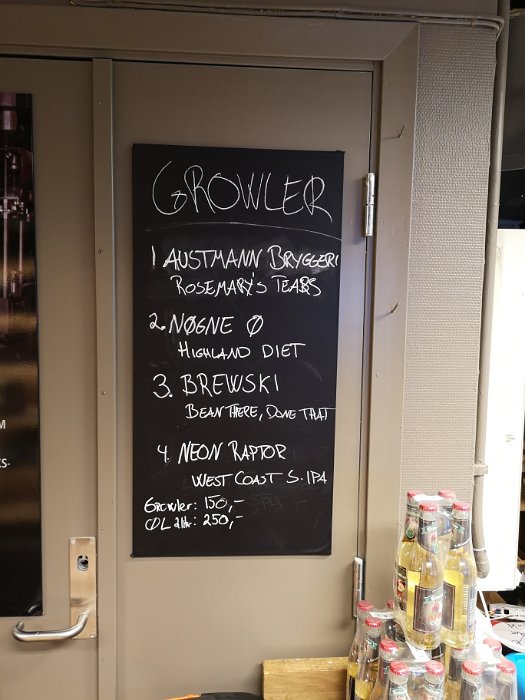 GROWLER
1 AUSTMANN BRYGGERI
ROSEMARY'S TEARS
2. NØGNE Ø
HIGHLAND DIET
3. BREWSKI
BEAN THERE, DONE THAT
4. NEON RAPTOR
WEST COAST S. IPA
Growler: 150,-
250,-